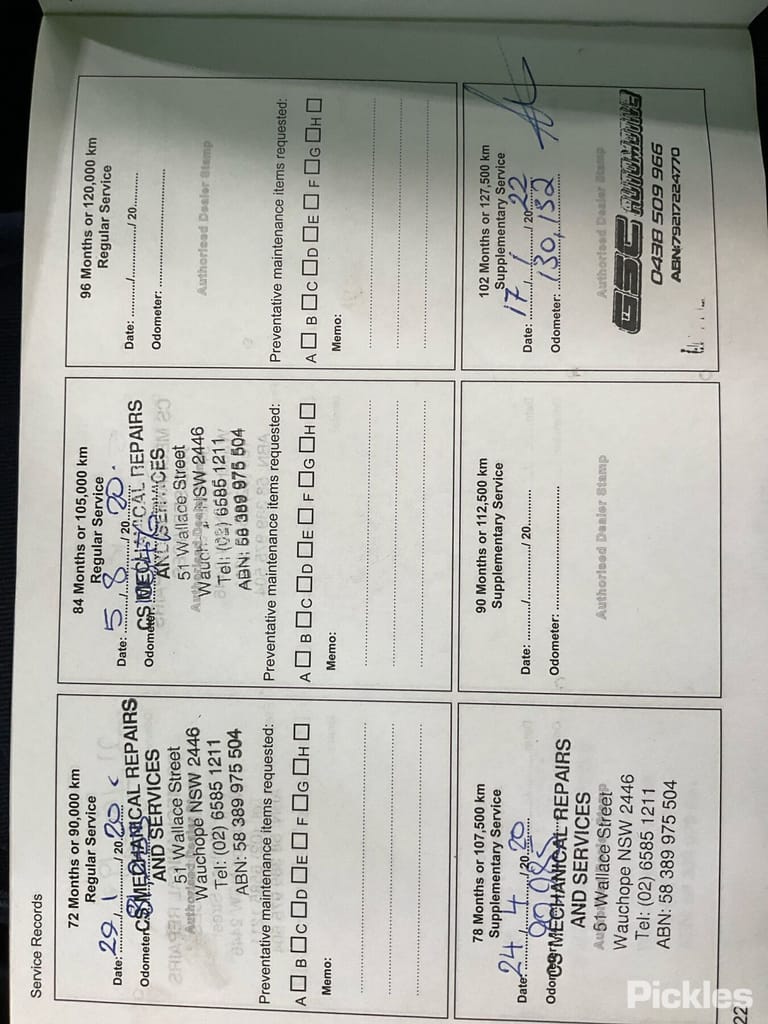 Service Records
72 Months or 90,000 km
Regular Service
Date: 29/1/2020
Odometer:
CS MECHANICAL REPAIRS
AND SERVICES
51 Wallace Street
Wauchope NSW 2446
Tel: (02) 6585 1211
ABN: 58 389 975 504
Preventative maintenance items requested:
A B C D E F G H
Memo:
84 Months or 105,000 km
Regular Service
Date: 5/8/2020.
Odometer:
CS MECHANICAL REPAIRS
AND SERVICES
51 Wallace Street
NSW 2446
Tel: (02) 6585 1211
ABN: 58 389 975 504
Preventative maintenance items requested:
A B C D E F G H
Memo:
96 Months or 120,000 km
Regular Service
Date: ........../........../ 20..........
Odometer: ..............................
Authorised Dealer Stamp
Preventative maintenance items requested:
A B C D E F G H
Memo:
78 Months or 107,500 km
Supplementary Service
Date: 24/4/2020
CS MECHANICAL REPAIRS
AND SERVICES
51 Wallace Street
Wauchope NSW 2446
Tel: (02) 6585 1211
ABN: 58 389 975 504
90 Months or 112,500 km
Supplementary Service
Date: ........../........../ 20..........
Odometer: ..............................
Authorised Dealer Stamp
102 Months or 127,500 km
Supplementary Service
Date: 17/1/2022
Odometer: 130,132
Authorised Dealer Stamp
AUTOMOTIVE
0438 509 966
ABN:79217224770
22
Pickles